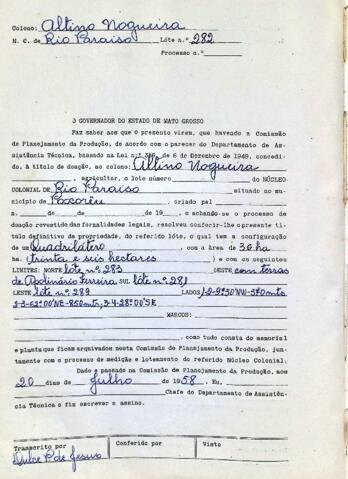 Colono: Altino Nogueira
N. C. de Rio Paraiso Lóte n.º 282
Processo n.º
O GOVERNADOR DO ESTADO DE MATO GROSSO
Faz saber aos que o presente virem, que havendo a Comissão
de Planejamento da Produção, de acordo com o parecer do Departamento de As-
sistência Técnica, basado na Lei n.º 6 de Dezembro de 1949, concedi-
do, à titulo de doação, ao colono: Altino Nogueira
agricultor, o lote número do NÚCLEO
COLONIAL DE Rio Paraiso situado no mu-
nicípio de Poxoréu, criado pel
n. de de de 19 , e achando-se o processo de
doação revestido das formalidades legais, resolveu conferir-lhe o presente ti-
tulo definitivo de propriedade, do referido lóte, o qual tem a configuração
de um Quadrilátero, com a área de 36 ha.
ha. (trinta e seis hectares) e com os seguintes
LIMITES: NORTE lóte n.º 283 OESTE com terras
de Apolinário Ferreira SUL lóte n.º 281
LESTE lóte n.º 289 LADOS
2-3-62º00'NE-850mts, 3-4-28º00'SE
MARCOS:
, como tudo consta do memorial
e planta que ficam arquivados nesta Comissão de Planejamento da Produção, jun-
tamente com o processo de medição e loteamento do referido Núcleo Colonial.
Dado e passado na Comissão de Planejamento da Produção, aos
20 dias de Julho de 1958. Eu,
Chefe do Departamento de Assistên-
cia Técnica o fiz escrever e assino.
Transcrito por Conferido por Visto
Dulce P. de Jesus